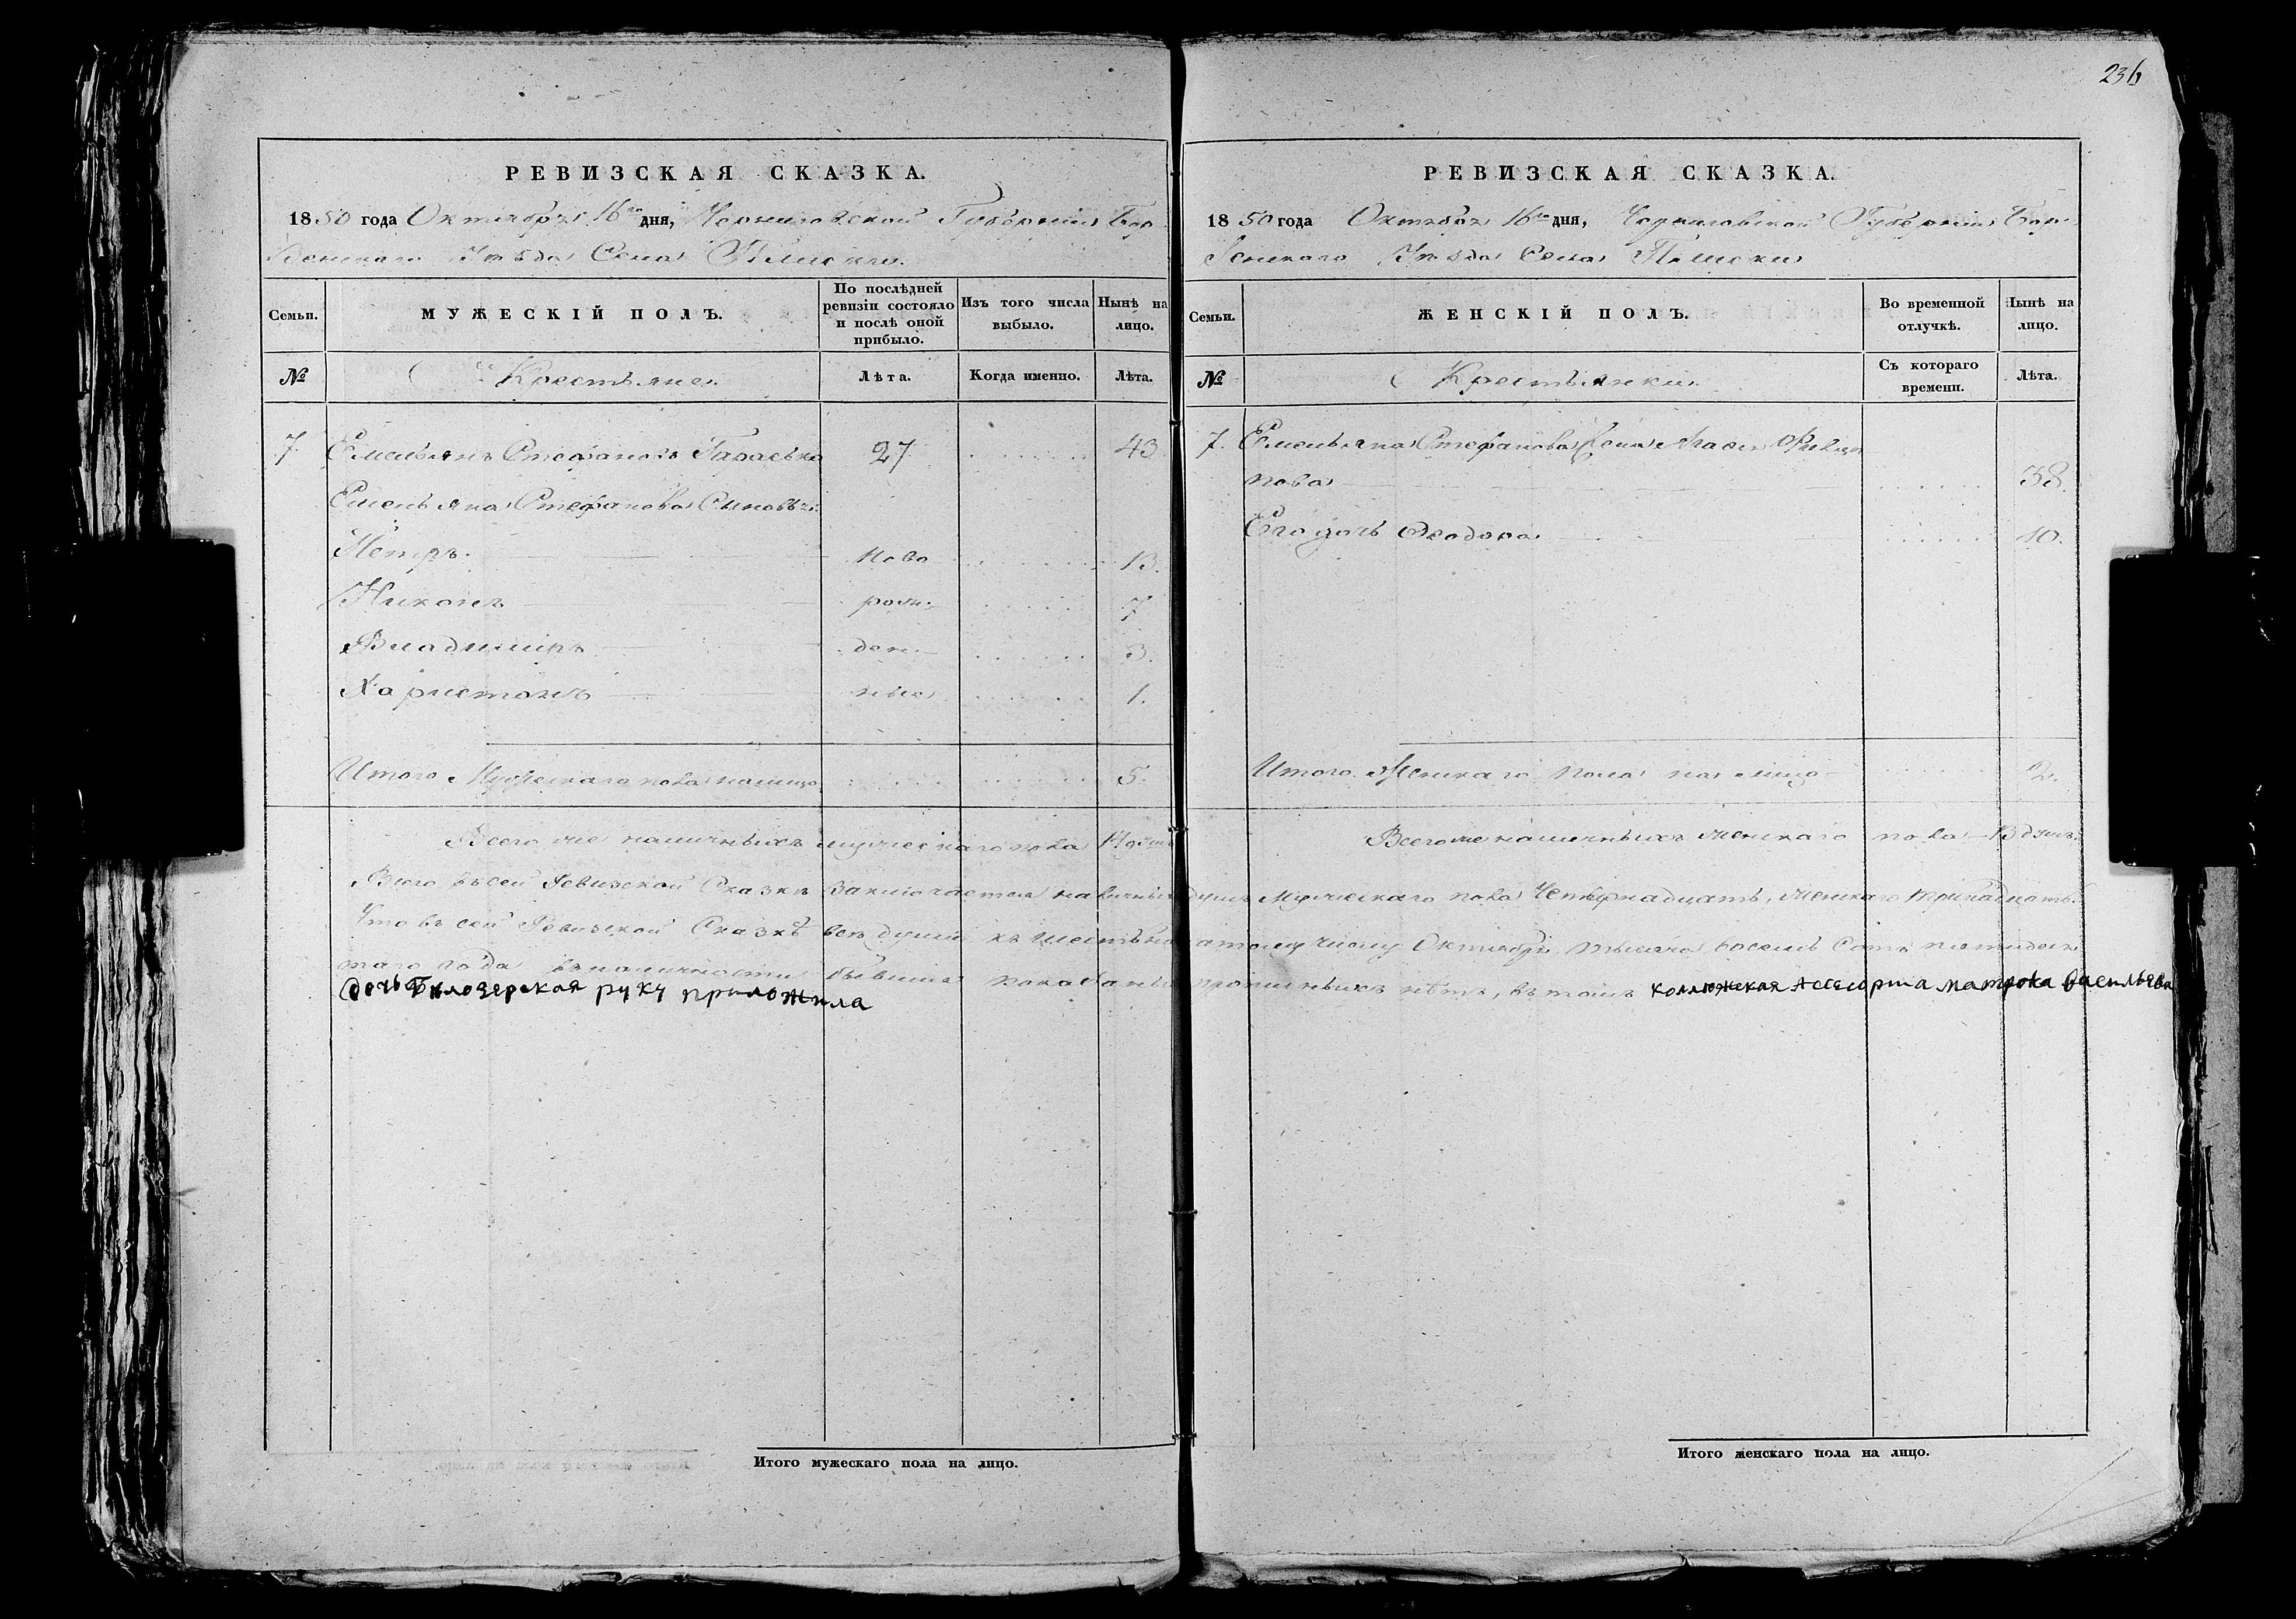 236
РЕВИЗСКАЯ СКАЗКА.
1850 года Октября 16го дня, Черниговской Губерніи Бор
зенскаго Уѣзда Села Плиски.
Семьи.
МУЖЕСКІЙ ПОЛЪ.
По послѣдней
ревизіи состояло
и послѣ оной
прибыло.
Изъ того числа
выбыло.
Нынѣ на
лицо.
№
Крестьяне.
Лѣта.
Когда именно.
Лѣта.
7 Емельянъ Стефановъ 27 43
Емельяна Стефанова Сыновья:
Петръ. ново 13.
Никонъ рож 7
Владимиръ ден 3.
Харитонъ ные 1.
Итого Мужескаго пола налицо 5.
Всего же наличныхъ мужескаго пола 14 душъ
РЕВИЗСКАЯ СКАЗКА.
1850 года Октября 16го дня, Черниговской Губерніи Бор
зенскаго Уѣзда Села Плиски
Семьи.
ЖЕНСКІЙ ПОЛЪ.
Во временной
отлучкѣ.
Нынѣ на
лицо.
№
Крестьянки.
Съ котораго
времени.
Лѣта.
7. Емельяна Стефанова Жена
пова 38.
Его дочь Феодора 10.
Итого Женскаго пола на лицо 2.
Всего же наличныхъ женскаго пола 13 душъ.
Всего въ сей Ревизской Сказкѣ заключается наличныхъ душъ Мужескаго пола Четырнадцать, женскаго тринадцать.
Что въ сей Ревизской Сказкѣ всѣ души къ шестьнадцатому числу Октября тысяча восемь Сотъ пятидеся
таго года въ наличности бывшія показаны и прописныхъ нѣтъ, въ томъ коллежская Асесорша Матрона Васильева
дочь Билозерская руку приложила
Итого мужескаго пола на лицо.
Итого женскаго пола на лицо.